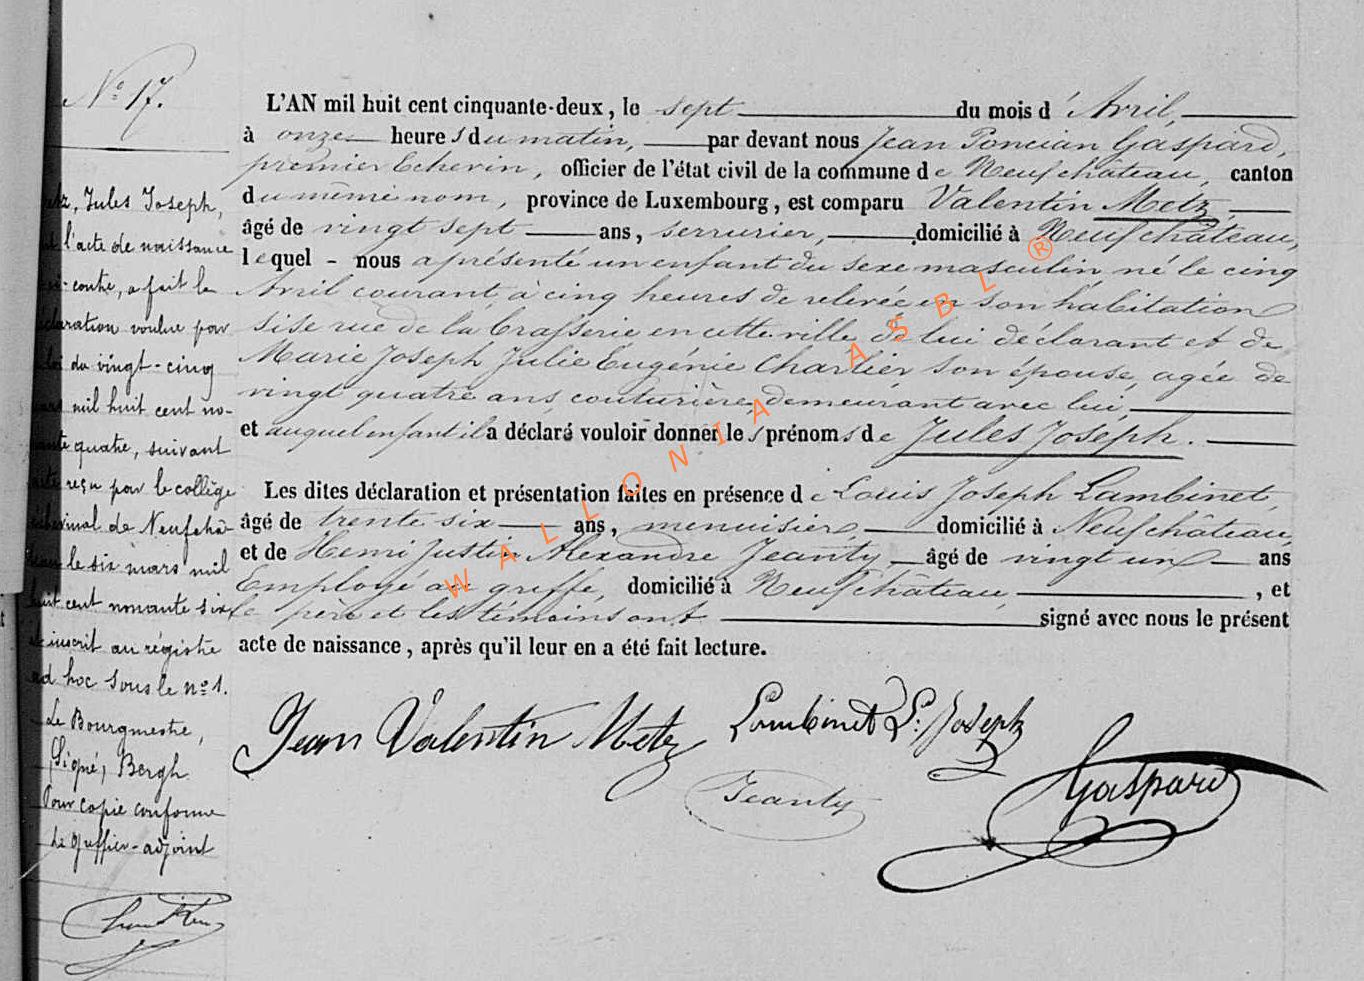 N° 17.
L'AN mil huit cent cinquante-deux, le sept du mois d' Avril,
à onze heures du matin, par devant nous Jean Poncian Gaspard,
premier Echevin, officier de l'état civil de la commune de Neufchâteau, canton
du même nom, province de Luxembourg, est comparu Valentin Metz,
âgé de vingt sept ans, serrurier, domicilié à Neufchâteau,
lequel - nous a présenté un enfant du sexe masculin né le cinq
Avril courant, à cinq heures de relevée en son habitation
sise rue de la brasserie en cette ville de lui déclarant et de
Marie Joseph Julie Eugénie Charlier son épouse, agée de
vingt quatre ans, couturière, demeurant avec lui,
et auquel enfant il a déclaré vouloir donner les prénoms de Jules Joseph.
Les dites déclaration et présentation faites en présence de Louis Joseph Lambinet,
âgé de trente six ans, menuisier, domicilié à Neufchâteau,
et de Henri Justin Alexandre Jeanty âgé de vingt un ans
Employé au greffe, domicilié à Neufchâteau, , et
le père et les témoins ont signé avec nous le présent
acte de naissance, après qu'il leur en a été fait lecture.
Jean Valentin Metz Lambinet L. Joseph
Jeanty Gaspard
Jules Joseph,
l'acte de naissance
ci-contre, a fait la
voulue par
du vingt-cinq
mil huit cent no-
quatre, suivant
reçu par le collège
échevinal de Neufchâ-
le six mars mil
huit cent nonante six
inscrit au régistre
ad hoc sous le n° 1.
Le Bourgmestre,
Signé, Bergh
Pour copie conforme
Le greffier-adjoint
WALLONIA ASBL ®